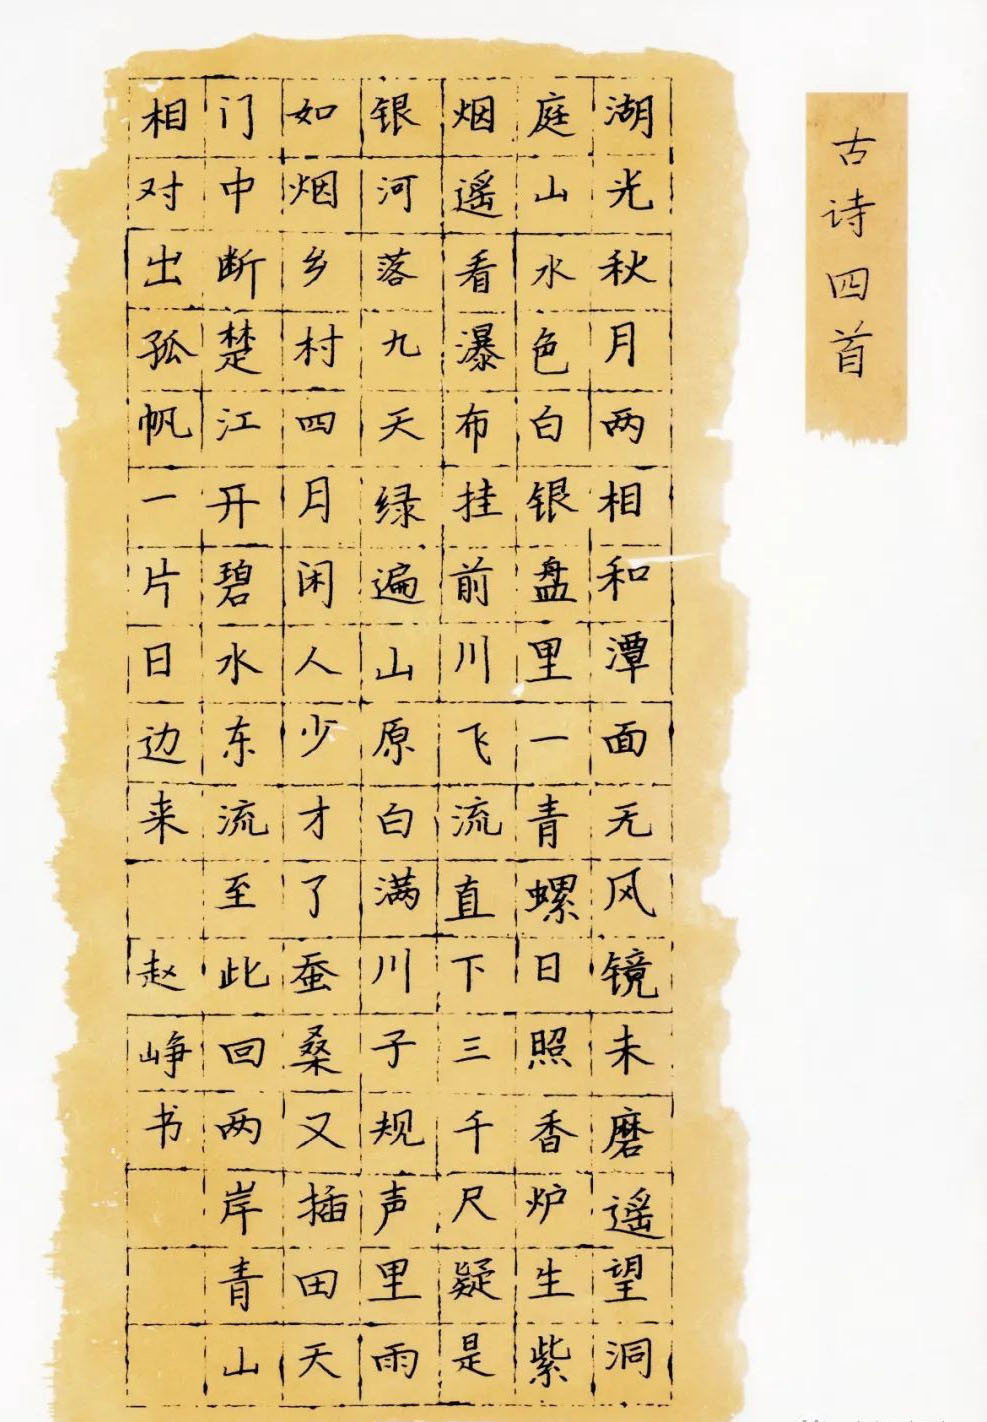 古诗四首
湖光秋月两相和潭面无风镜未磨遥望洞
庭山水色白银盘里一青螺日照香炉生紫
烟遥看瀑布挂前川飞流直下三千尺疑是
银河落九天绿遍山原白满川子规声里雨
如烟乡村四月闲人少才了蚕桑又插田天
门中断楚江开碧水东流至此回两岸青山
相对出孤帆一片日边来 赵峥书